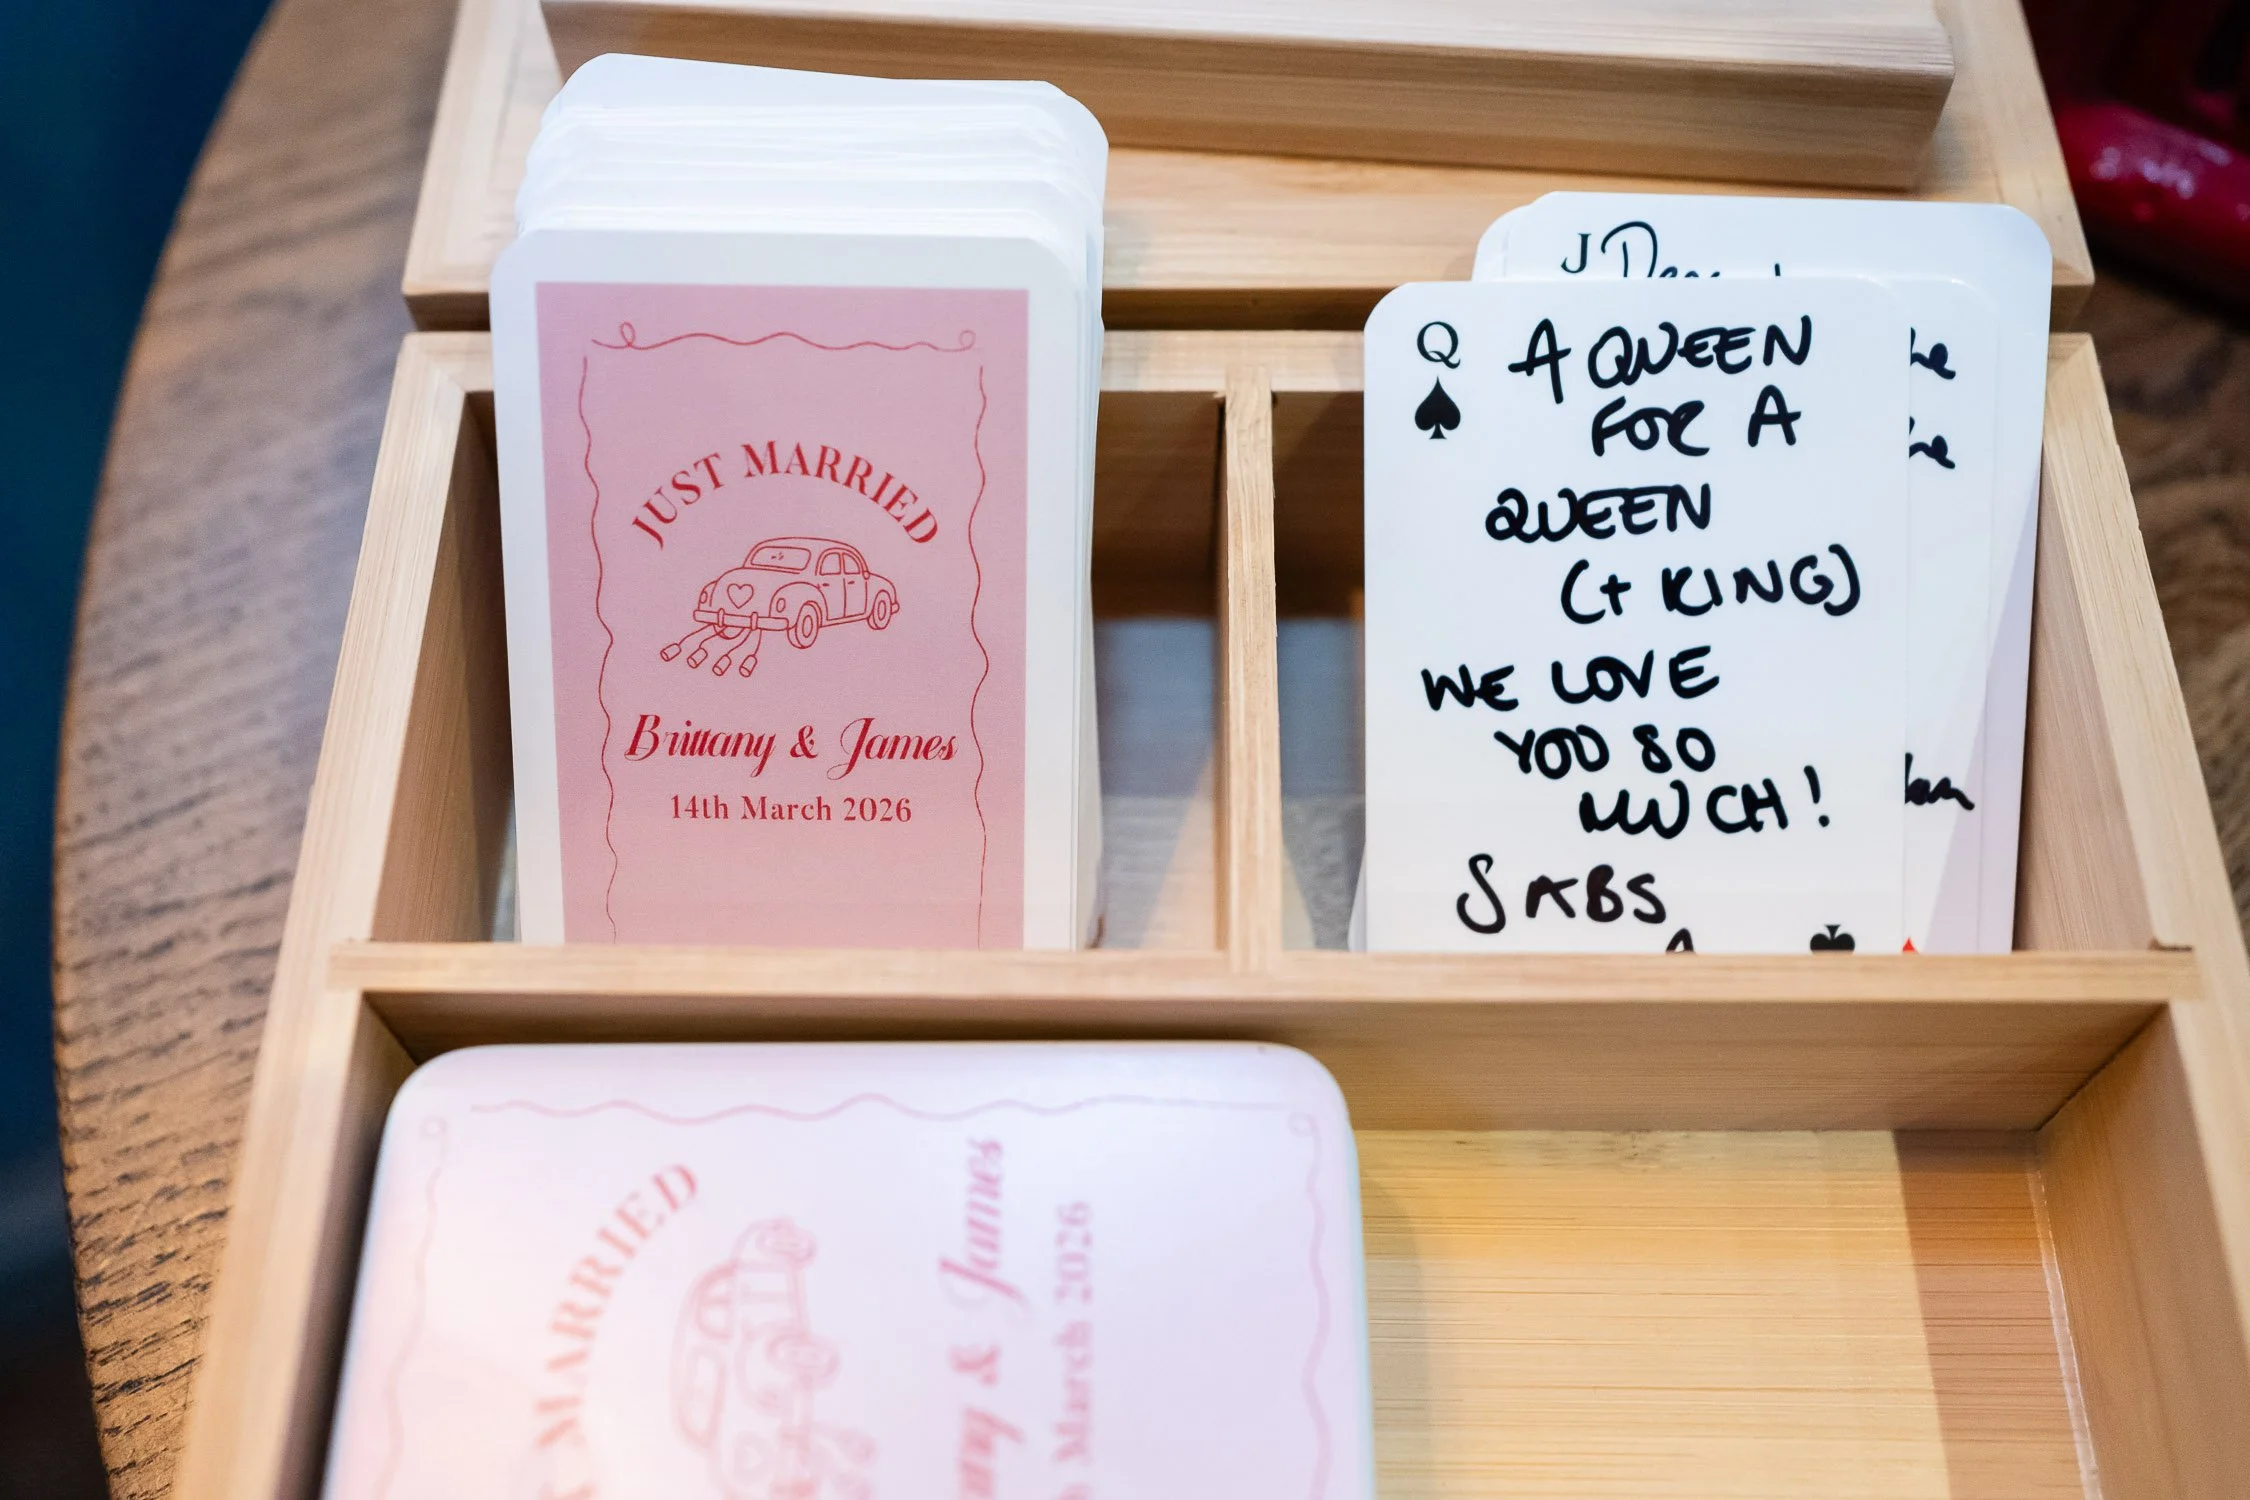 JUST MARRIED
Brittany & James
14th March 2026
J
Q
A QUEEN
FOR A
QUEEN
(+ KING)
WE LOVE
YOU SO
MUCH!
SABS
MARRIED
& James
March 2026